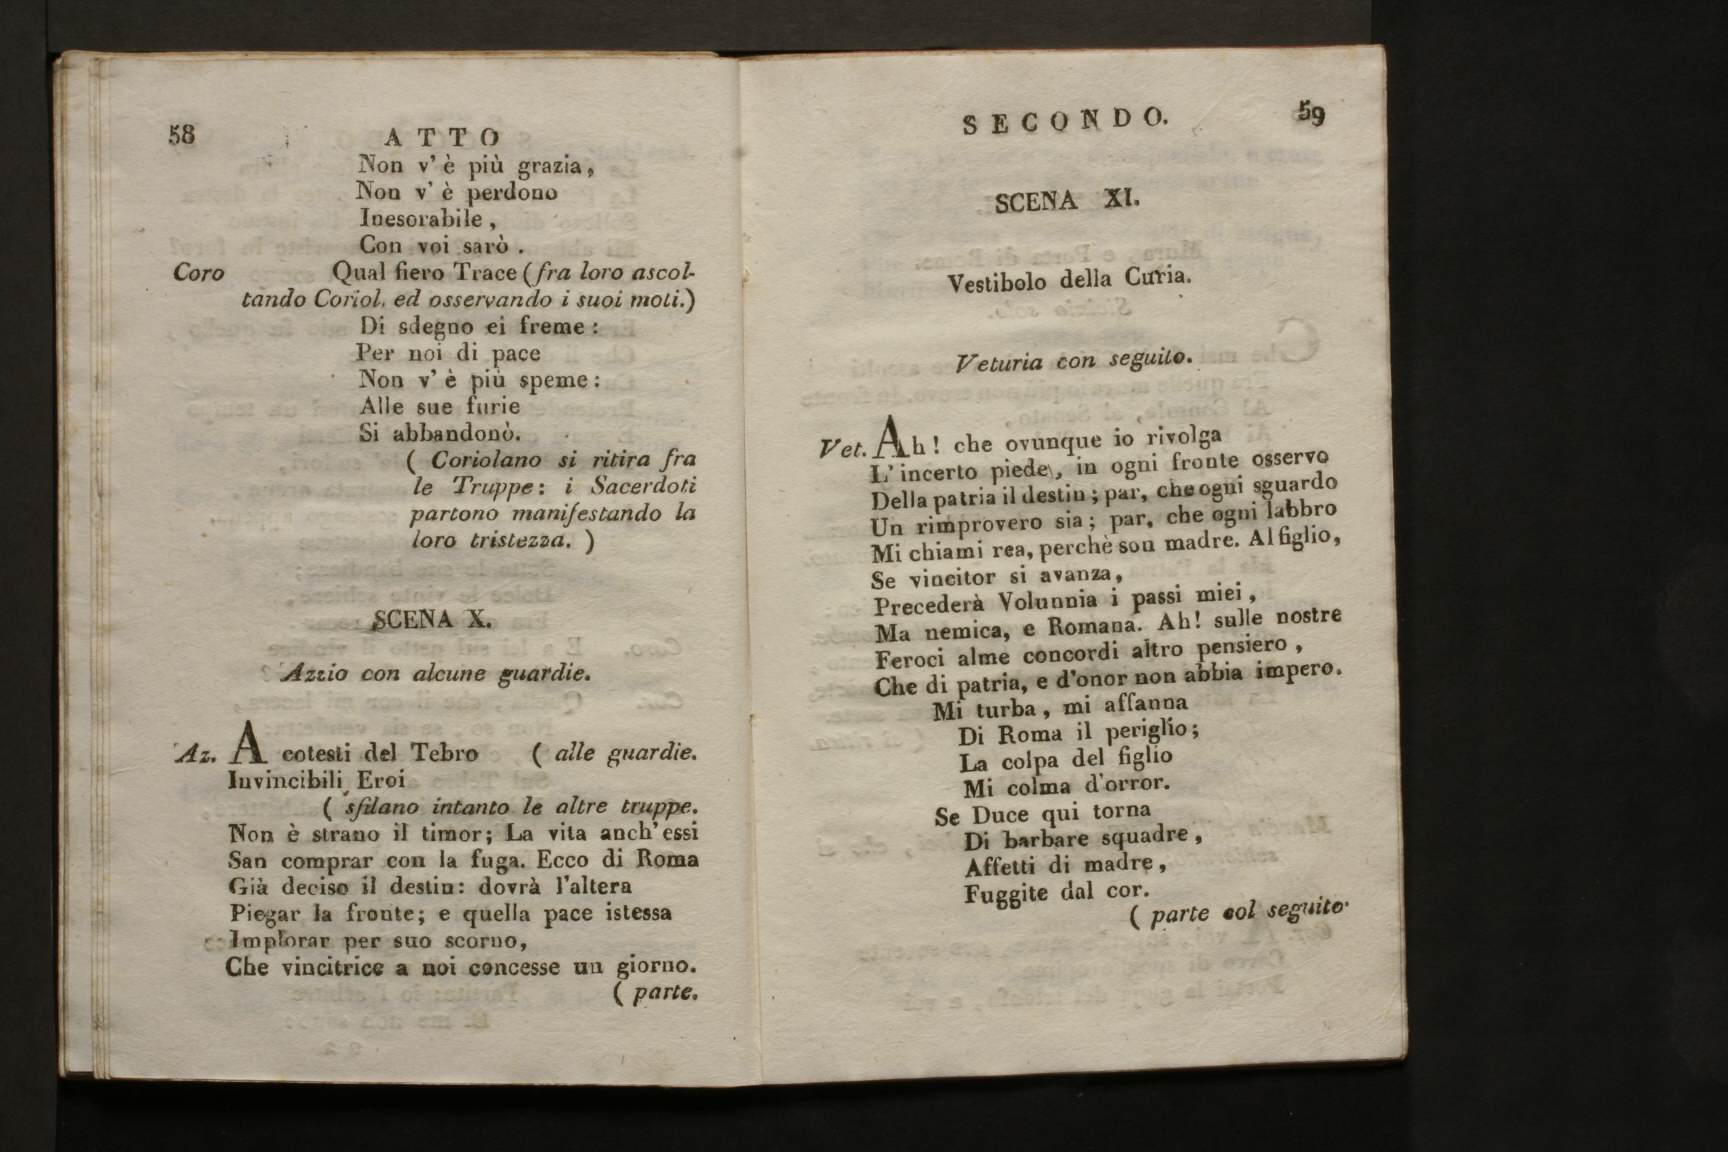 58
ATTO
Non v' è più grazia,
Non v' è perdono
Inesorabile,
Con voi sarò.
Coro Qual fiero Trace (fra loro ascol-
tando Coriol. ed osservando i suoi moti.)
Di sdegno ei freme:
Per noi di pace
Non v' è più speme:
Alle sue furie
Si abbandonò.
( Coriolano si ritira fra
le Truppe: i Sacerdoti
partono manifestando la
loro tristezza. )
SCENA X.
Azzio con alcune guardie.
Az. A cotesti del Tebro ( alle guardie.
Invincibili Eroi
( sfilano intanto le altre truppe.
Non è strano il timor; La vita anch' essi
San comprar con la fuga. Ecco di Roma
Già deciso il destin: dovrà l'altera
Piegar la fronte; e quella pace istessa
Implorar per suo scorno,
Che vincitrice a noi concesse un giorno.
( parte.
SECONDO.
59
SCENA XI.
Vestibolo della Curia.
Veturia con seguito.
Vet. Ah! che ovunque io rivolga
L' incerto piede, in ogni fronte osservo
Della patria il destin; par, che ogni sguardo
Un rimprovero sia; par, che ogni labbro
Mi chiami rea, perchè son madre. Al figlio,
Se vincitor si avanza,
Precederà Volunnia i passi miei,
Ma nemica, e Romana. Ah! sulle nostre
Feroci alme concordi altro pensiero,
Che di patria, e d'onor non abbia impero.
Mi turba, mi affanna
Di Roma il periglio;
La colpa del figlio
Mi colma d'orror.
Se Duce qui torna
Di barbare squadre,
Affetti di madre,
Fuggite dal cor.
( parte col seguito.